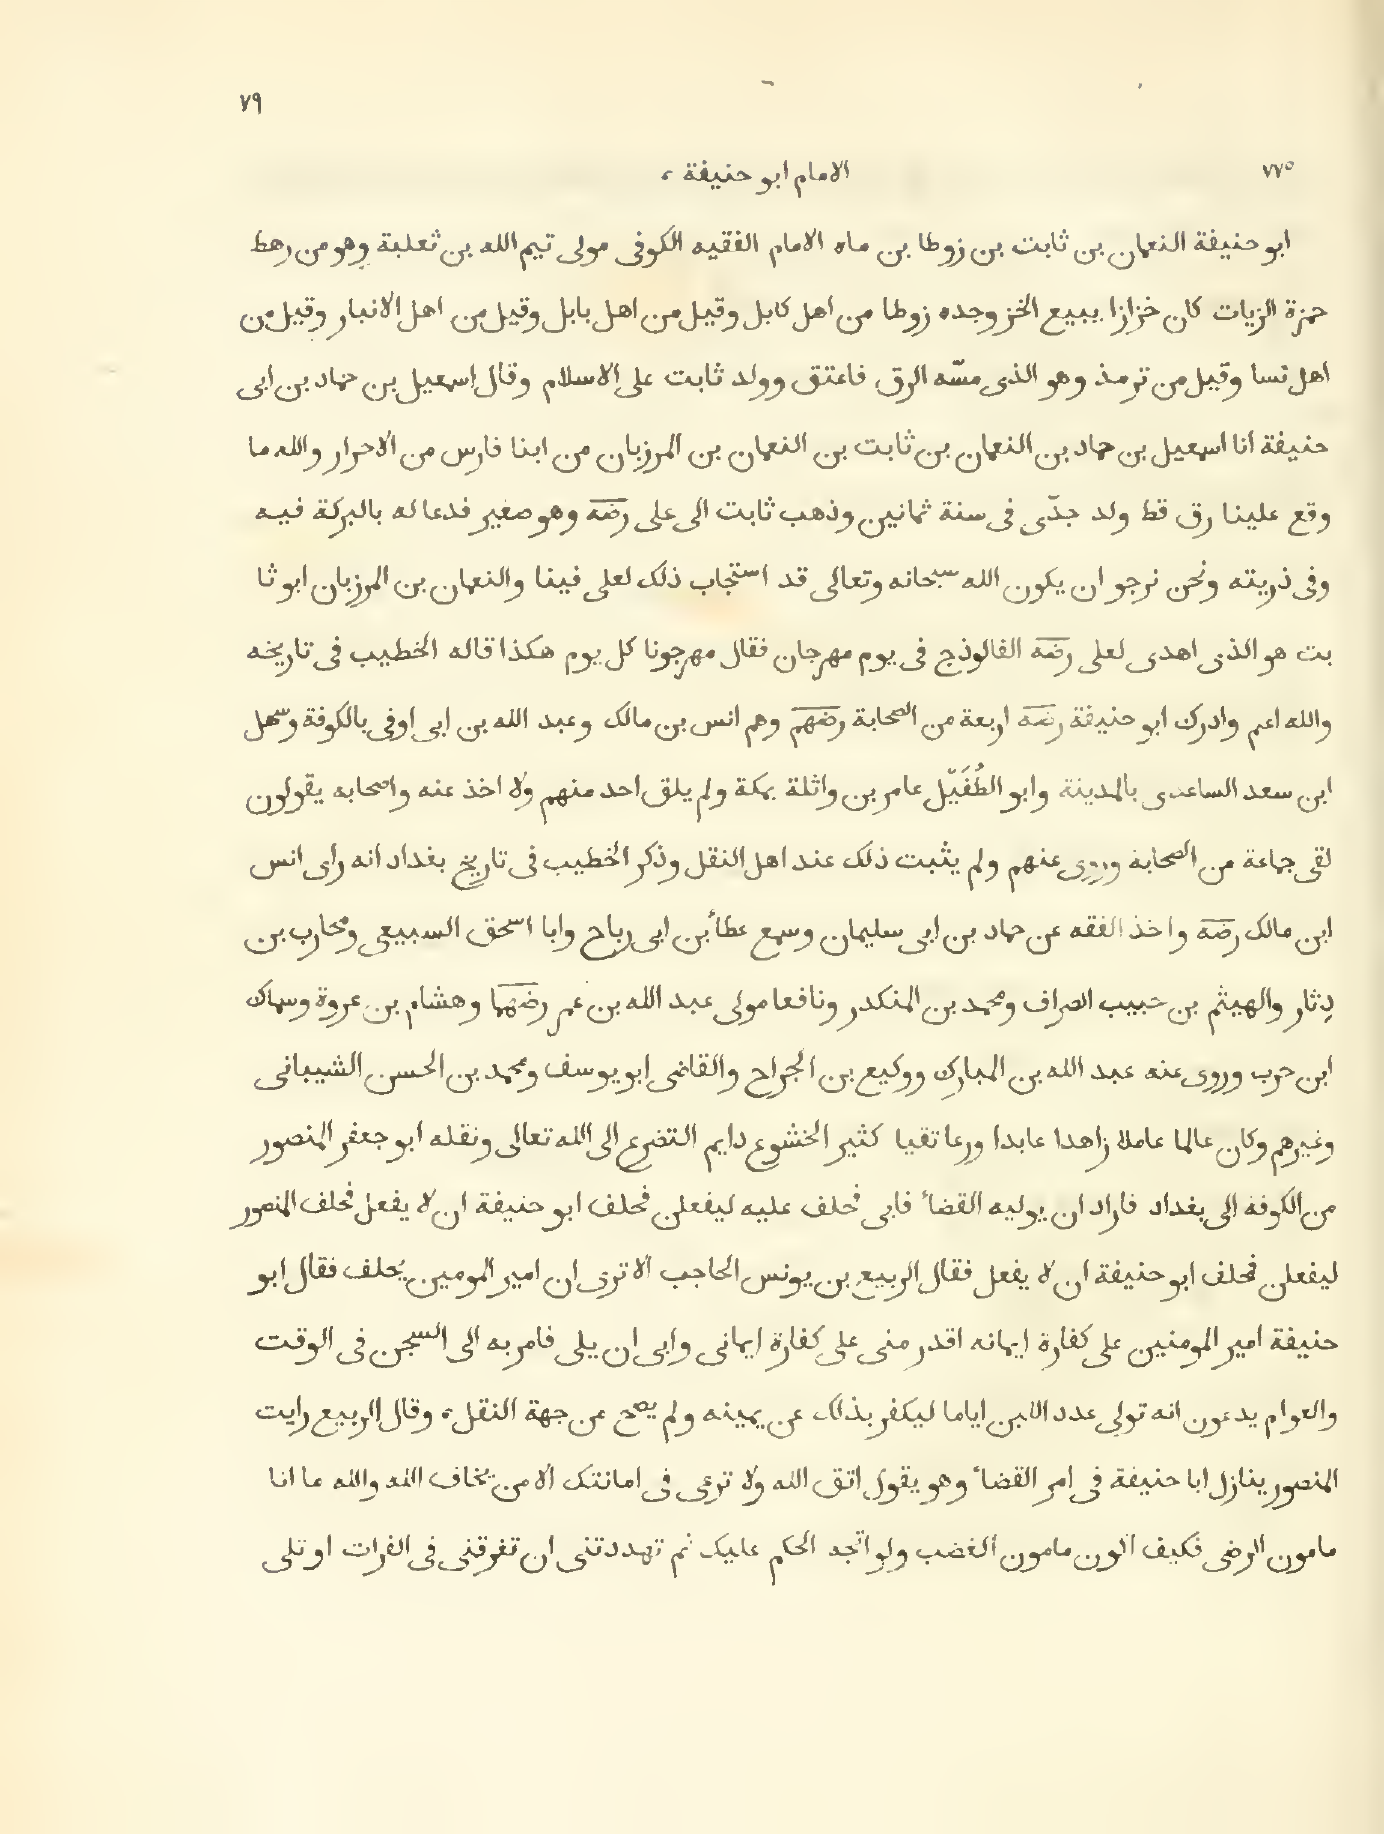 ٧٩
٧٧٥
الامام ابو حنيفة ،
ابو حنيفة النعمان بن ثابت بن زوطا بن ماه الامام الفقيه الكوفى مولى تيم الله بن ثعلبة وهو من رهط
حمزة الزيات كان خزازا يبيع الخز وجده زوطا من اهل كابل وقيل من اهل بابل وقيل من اهل الانبار وقيل من
اهل نسا وقيل من ترمذ وهو الذى مسّه الرق فاعتق وولد ثابت على الاسلام وقال اسمعيل بن حماد بن ابى
حنيفة انا اسمعيل بن حماد بن النعمان بن ثابت بن النعمان بن المرزبان من ابنا فارس من الاحرار والله ما
وقع علينا رق قط ولد جدّى فى سنة ثمانين وذهب ثابت الى على رضه وهو صغير فدعا له بالبركة فيه
وفى ذريته ونحن نرجو ان يكون الله سبحانه وتعالى قد استجاب ذلك لعلى فينا والنعمان بن المرزبان ابو ثا
بت هو الذى اهدى لعلى رضه الفالوذج فى يوم مهرجان فقال مهرجونا كل يوم هكذا قاله الخطيب فى تاريخه
والله اعم وادرك ابو حنيفة رضه اربعة من الصحابة رضهم وهم انس بن مالك وعبد الله بن ابى اوفى بالكوفة وسهل
ابن سعد الساعدى بالمدينة وابو الطُفَيّل عامر بن واثلة بمكة ولم يلق احد منهم ولا اخذ عنه واصحابه يقولون
لقى جماعة من الصحابة وروى عنهم ولم يثبت ذلك عند اهل النقل وذكر الخطيب فى تاريخ بغداد انه رأى انس
ابن مالك رضه واخذ الفقه عن حماد بن ابى سليمان وسمع عطأ بن ابى رباح وابا اسحق السبيعى ومحارب بن
دِثار والهيثم بن حبيب الصراف ومحمد بن المنكدر ونافعا مولى عبد الله بن عمر رضهما وهشام بن عروة وسماك
ابن حرب وروى عنه عبد الله بن المبارك ووكيع بن الجراح والقاضى ابو يوسف ومحمد بن الحسن الشيبانى
وغيرهم وكان عالما عاملا زاهدا عابدا ورعا تقيا كثير الخشوع دايم التضرع الى الله تعالى ونقله ابو جعفر المنصور
من الكوفة الى بغداد فاراد ان يوليه القضاء فابى فحلف عليه ليفعلن فحلف ابو حنيفة ان لا يفعل فحلف المنصور
ليفعلن فحلف ابو حنيفة ان لا يفعل فقال الربيع بن يونس الحاجب الا ترى ان امير المومنين يحلف فقال ابو
حنيفة امير المومنين على كفارة ايمانه اقدر منى على كفارة ايمانى وابى ان يلى فامر به الى السجن فى الوقت
والعوام يدعون انه تولى عدد اللبن اياما ليكفر بذلك عن يمينه ولم يصح عن جهة النقل ، وقال الربيع رايت
المنصور ينازل ابا حنيفة فى امر القضاء وهو يقول اتق الله ولا ترعى فى امانتك الا من يخاف الله والله ما انا
مامون الرضى فكيف اكون مامون الغضب ولو اتجه الحكم عليك ثم تهددتنى ان تغرقنى فى الفرات او تلى